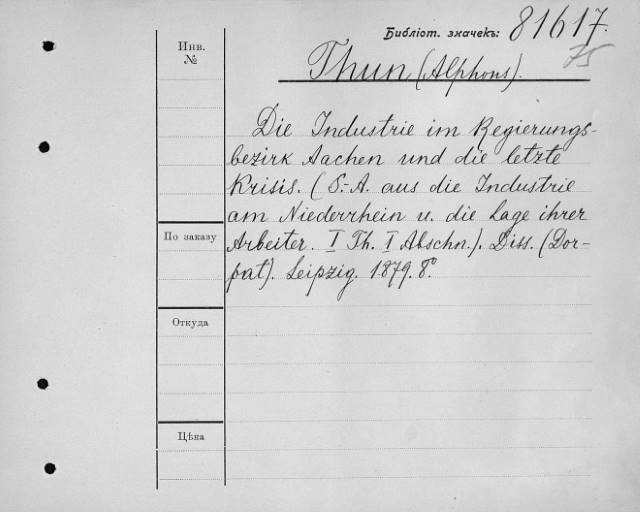 Библіот. значекъ: 81617.
75
Инв.
№
Thun (Alphons).
Die Industrie im Regierungs-
bezirk Aachen und die letzte
Krisis. (S.-A. aus die Industrie
am Niederrhein u. die Lage ihrer
Arbeiter. I Th. I Abschn.). Diss. (Dor-
pat). Leipzig. 1879. 8°
По заказу
Откуда
Цѣна